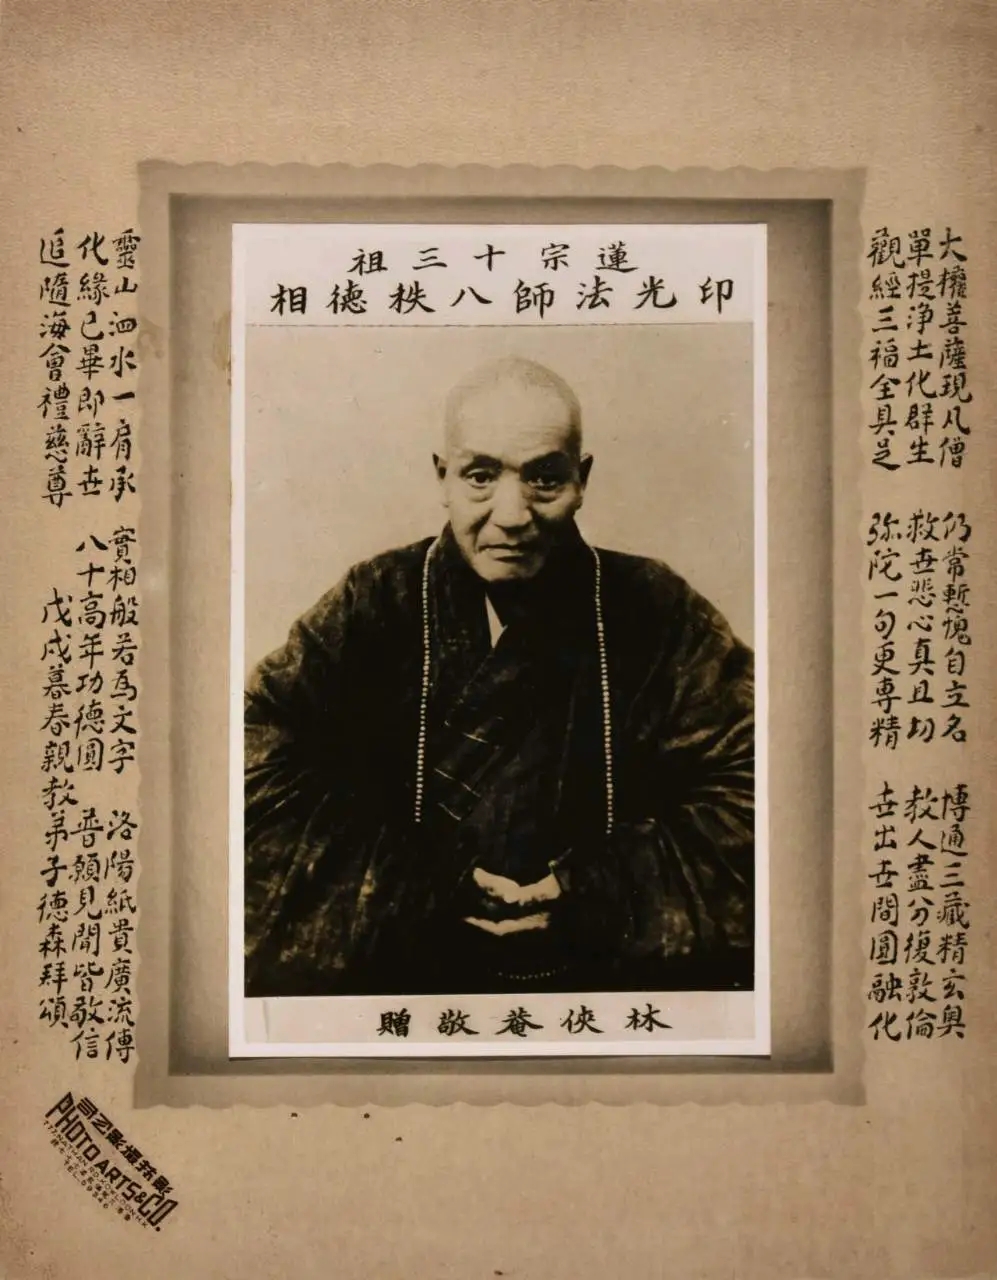 蓮宗十三祖
印光法師八秩德相
林俠菴敬贈
大權菩薩現凡僧 仍常慙愧自立名 博通三藏精玄奥
單提淨土化群生 救世悲心真且切 教人盡分復敦倫
觀經三福全具足 弥陀一句更専精 世出世間圓融化
靈山泗水一肩承 實相般若為文字 洛陽紙貴廣流傳
化緣已畢即辭世 八十高年功德圓 普願見聞皆敬信
追隨海會禮慈尊 戊戌暮春親教弟子德森拜頌
PHOTO ARTS & CO.